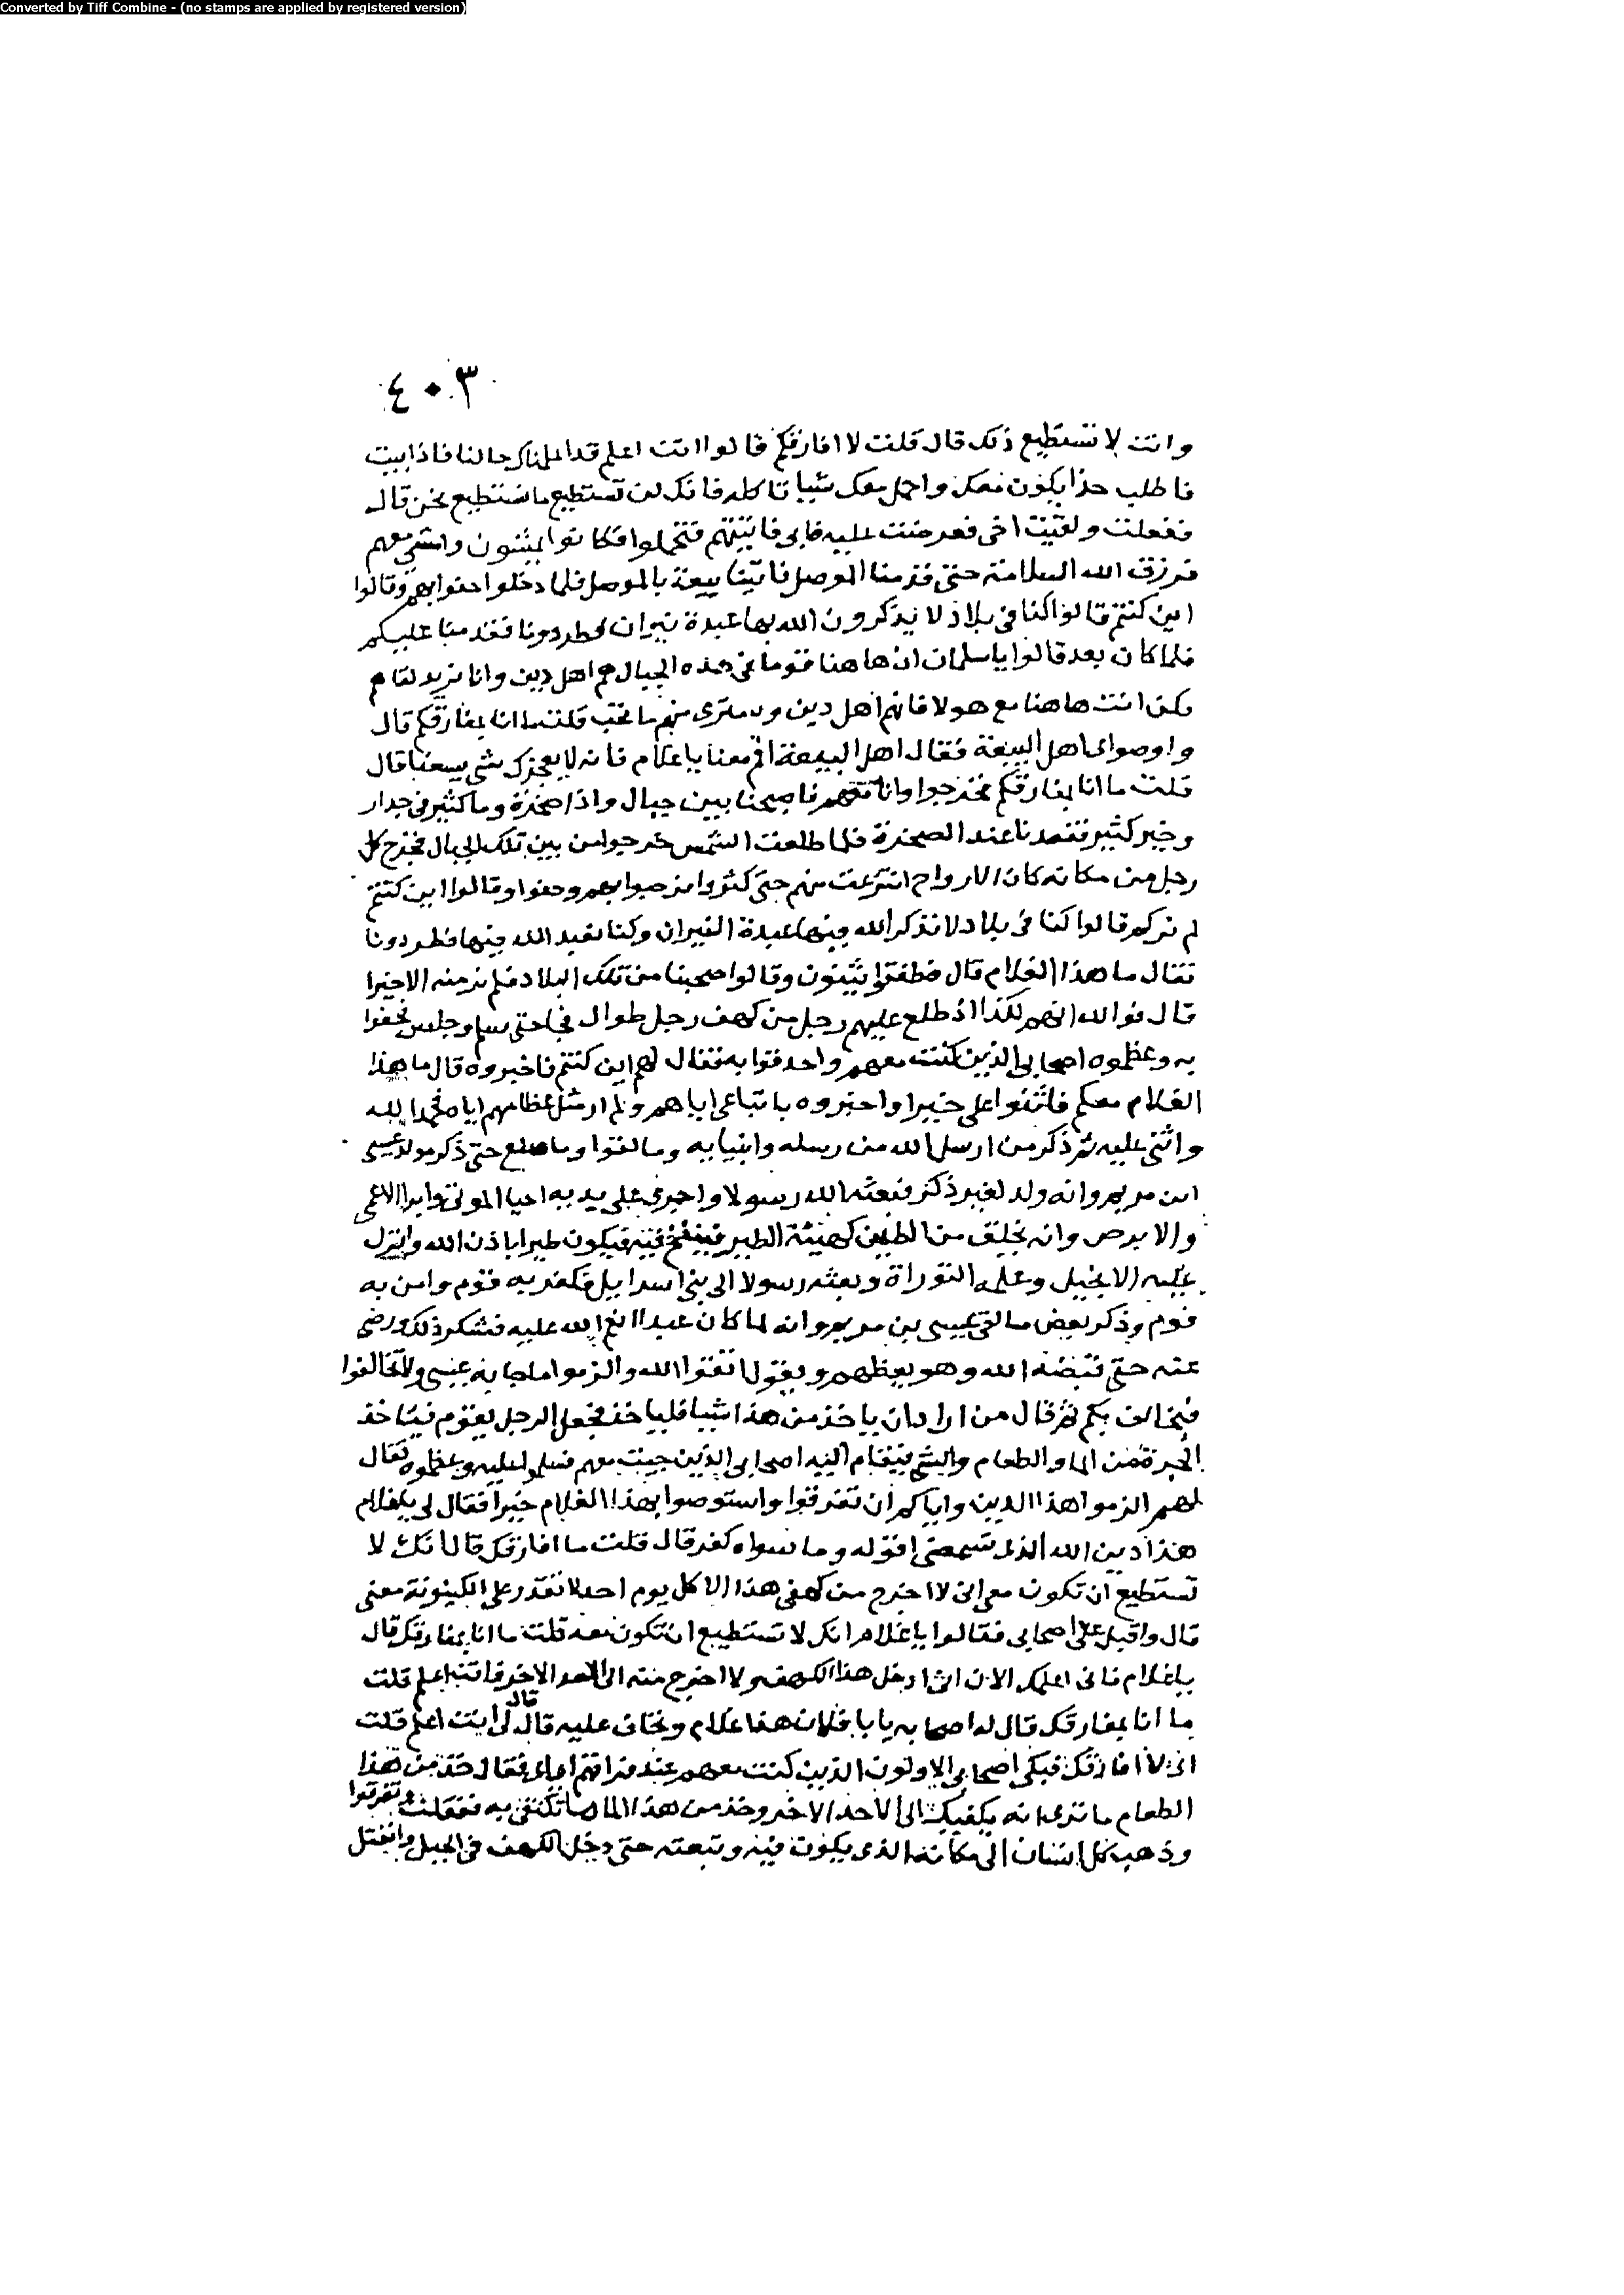 Converted by Tiff Combine - (no stamps are applied by registered version)
٤٠٣
وانت لا تستطيع ذلك قال قلت لا افارقكم قالوا انت اعلم قد اعلمناك حالنا فاذا ابيت
فاطلب حذا يكون معك واحمل معك شيا تاكله فانك لن تستطيع ما نستطيع نحن قال
ففعلت ولقيت اخى فعرضت عليه فابى فاتيتهم فتحملوا فكانوا يمشون وامشى معهم
فرزق الله السلامة حتى قدمنا الموصل فاتينا بيعة بالموصل فلما دخلوا احفوا بهم وقالوا
اين كنتم قالوا كنا فى بلاد لا يذكرون الله بها عبدة نيران فطردونا فقدمنا عليكم
فلما كان بعد قالوا يا سلمان ان هاهنا قوما فى هذه الجبال هم اهل دين وانا نريد لقاهم
فكن انت هاهنا مع هولا فانهم اهل دين وسترى منهم ما تحب قلت ما انا بمفارقكم قال
واوصوا بى اهل البيعة فقال اهل البيعة اقم معنا يا غلام فانه لا يعجزك شى يسعنا قال
قلت ما انا بمفارقكم فخرجوا وانا معهم فاصبحنا بين جبال واذا صخرة وما كثير فى جرار
وخبز كثير فقعدنا عند الصخرة فلما طلعت الشمس خرجوا من بين تلك الجبال يخرج كل
رجل من مكانه كان الارواح انتزعت منهم حتى كثروا فرحبوا بهم وحفوا وقالوا اين كنتم
لم نركم قالوا كنا فى بلاد لا تذكر الله فيها عبدة النيران وكنا نعبد الله فيها فطردونا
فقال ما هذا الغلام قال فطفقوا يثنون وقالوا صحبنا من تلك البلاد فلم نر منه الا خيرا
قال فوالله انهم لكذا اذ طلع عليهم رجل من كهف رجل طوال فجا حتى سلم وجلس فحفوا
به وعظموه اصحابى الذين كنت معهم واحدقوا به فقال لهم اين كنتم فاخبروه قال ما هذا
الغلام معكم فاثنوا على خيرا واخبروه باتباعى اياهم ولم ار مثل اعظامهم اياه فحمد الله
واثنى عليه ثم ذكر من ارسل الله من رسله وانبيايه وما لقوا وما صنع حتى ذكر مولد عيسى
ابن مريم وانه ولد لغير ذكر فبعثه الله رسولا واجرى على يديه احيا الموتى وابرا الاعمى
والابرص وانه يخلق من الطين كهيئة الطير فينفخ فيه فيكون طيرا باذن الله وانزل
عليه الانجيل وعلمه التوراة وبعثه رسولا الى بنى اسرايل فكفر به قوم وامن به
قوم وذكر بعض ما لقى عيسى بن مريم وانه لما كان عبدا انعم الله عليه فشكر ذلك ورضى
عنه حتى قبضه الله وهو يعظهم ويقول اتقوا الله والزموا ما جا به عيسى ولا تخالفوا
فيخالف بكم ثم قال من اراد ان ياخذ من هذا شيا فلياخذ فجعل الرجل يقوم فياخذ
الجرة من الما والطعام والشى فقام اليه اصحابى الذين جيت معهم فسلموا عليه وعظموه فقال
لهم الزموا هذا الدين واياكم ان تفرقوا واستوصوا بهذا الغلام خيرا فقال لى يا غلام
هذا دين الله الذى تسمعنى اقوله وما سواه كفر قال قلت ما افارقك قال انك لا
تستطيع ان تكون معى انى لا اخرج من كهفى هذا الا كل يوم احد لا تقدر على الكينونة معى
قال واقبل على اصحابى فقالوا يا غلام انك لا تستطيع ان تكون معه قلت ما انا بمفارقك قال
يا غلام فانى اعلمك الان انى ادخل هذا الكهف ولا اخرج منه الى الاحد الاخر فانت اعلم قلت
ما انا بمفارقك قال له اصحابه يابا فلان هذا غلام ونخاف عليه قال قال لى انت اعلم قلت
انى لا افارقك فبكى اصحابى الاولون الذين كنت معهم عند فراقهم اياى فقال خذ من هذا
الطعام ما ترى انه يكفيك الى الاحد الاخر وخذ من هذا الما ما تكتفى به ففعلت وتفرقوا
وذهب كل انسان الى مكانه الذى يكون فيه وتبعته حتى دخل الكهف فى الجبل وانفتل